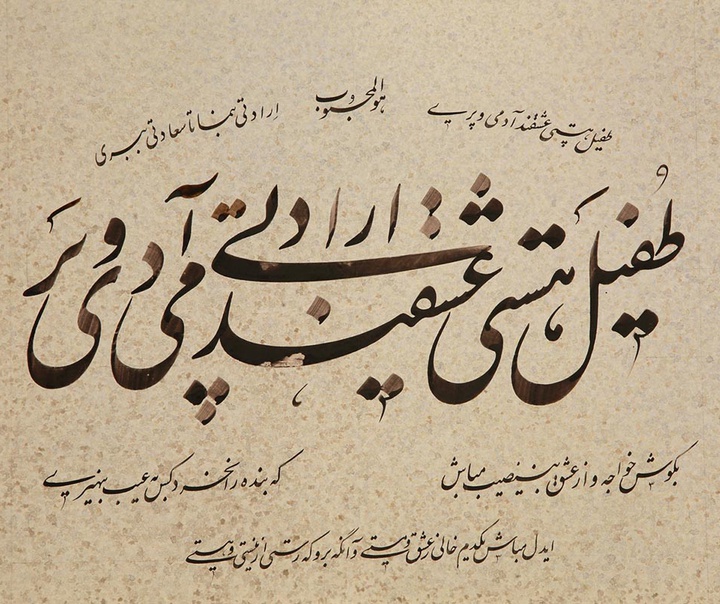 هوالمحبوب
طفیل هستی عشقند آدمی و پری
ارادتی بنما تا سعادتی ببری
طُفیل هستی عشقند آدمی و پری ارادتی
بکوش خواجه و از عشق بی‌نصیب مباش
که بنده را نخرد کس به عیب بی‌هنری
ایدل مباش یکدم خالی ز عشق و مستی وآنگه برو که رستی از نیستی و هستی